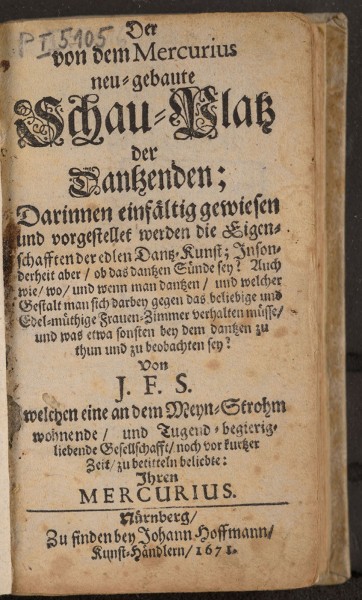 P I 5105
Der
von dem Mercurius
neu-gebaute
Schau-Platz
der
Dantzenden;
Darinnen einfältig gewiesen
und vorgestellet werden die Eigen-
schafften der edlen Dantz-Kunst; Inson-
derheit aber / ob das dantzen Sünde sey? Auch
wie / wo / und wenn man dantzen / und welcher
Gestalt man sich darbey gegen das beliebige und
Edel-müthige Frauen-Zimmer verhalten müsse /
und was etwa sonsten bey dem dantzen zu
thun und zu beobachten sey?
Von
J. F. S.
welchen eine an dem Meyn-Strohm
wohnende / und Tugend-begierig-
liebende Gesellschafft / noch vor kurtzer
Zeit / zu betitteln beliebte:
Ihren
MERCURIUS.
Nürnberg /
Zu finden bey Johann Hoffmann /
Kunst-Händlern / 1671.